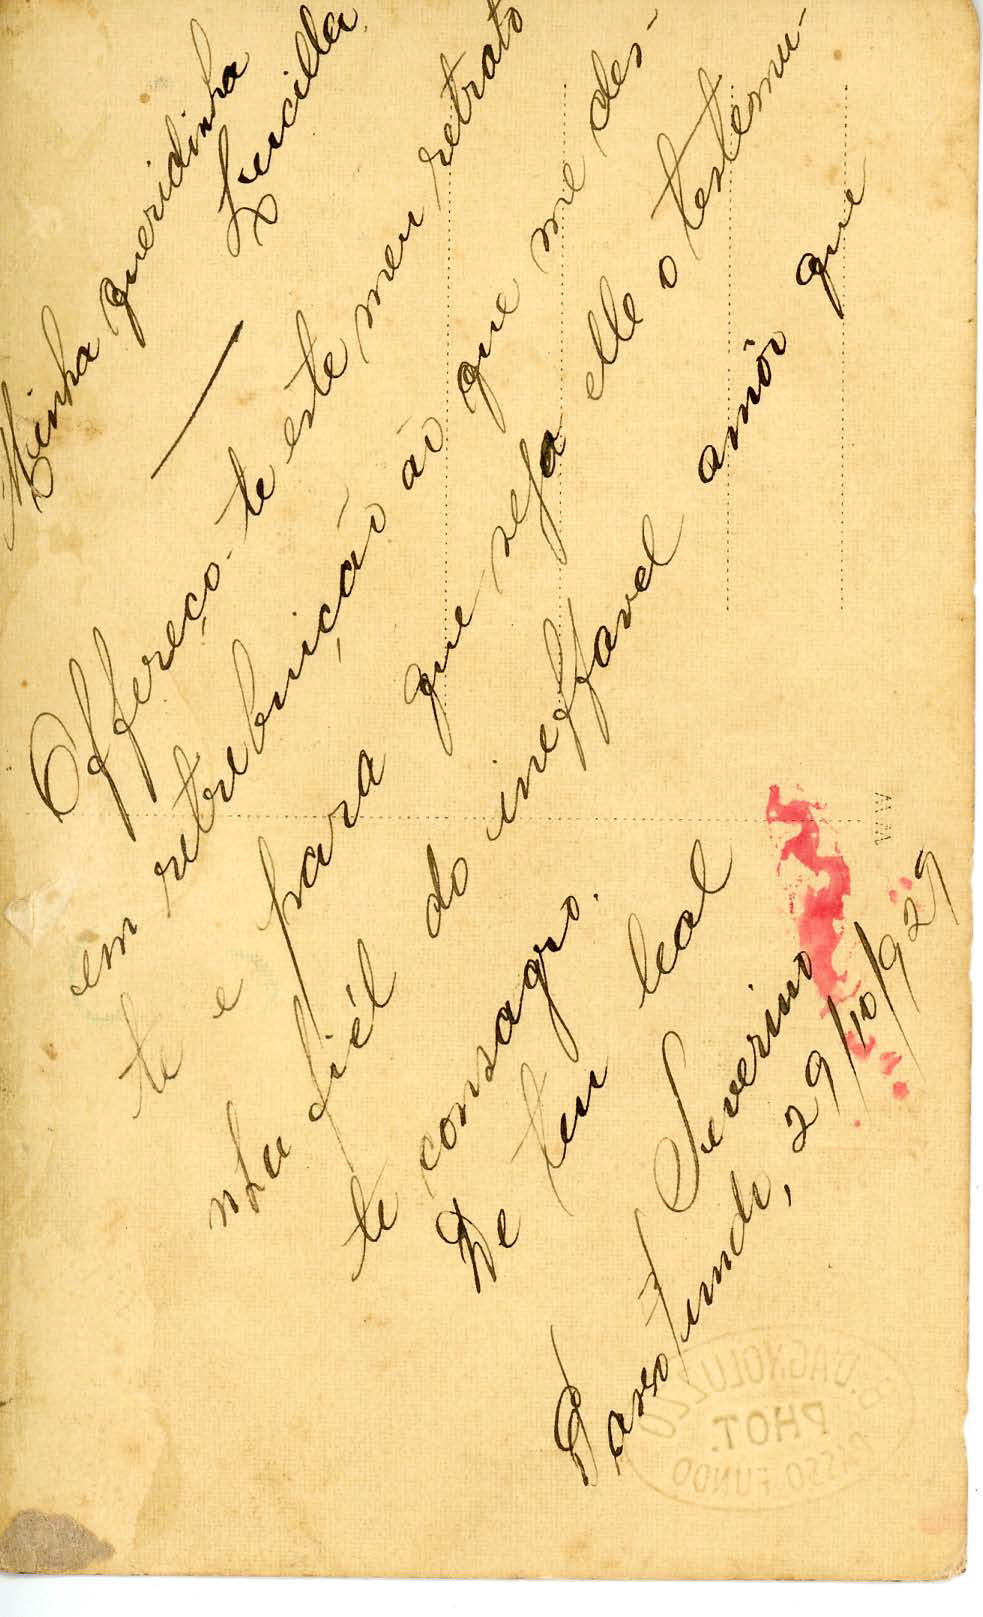 Minha queridinha
Lucilla
Offereço-te este meu retrato
em retrebuição ao que me des-
te e para que seja elle o testemu-
nhu fiél do ineffavel amôr que
te consagro.
De teu leal
Severino
Passo Fundo, 29/10/929
WW
B. DAGNOLUZZO
PHOT.
PASSO FUNDO